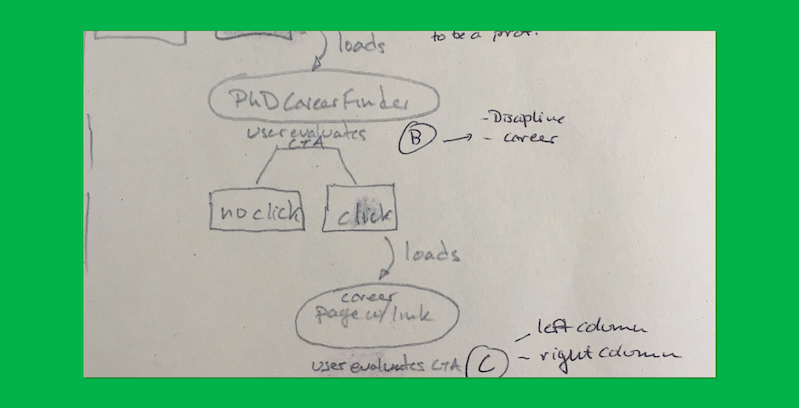 loads
to be a prof.
PhD Career Finder
user evaluates
CTA
B
- Discipline
- career
no click
click
loads
career
page w/ link
user evaluates CTA
C
- left column
- right column